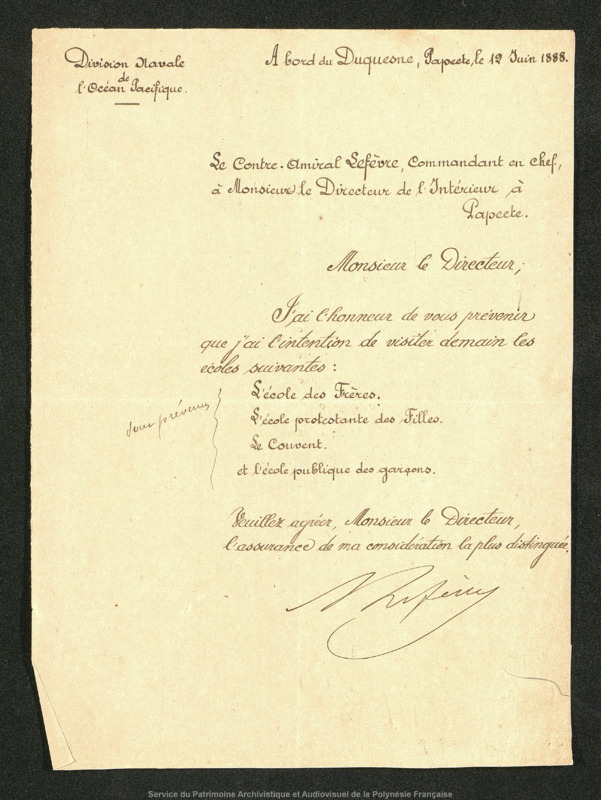 Division Navale
de
l'Océan Pacifique.
A bord du Duquesne, Papeete, le 12 Juin 1888.
Le Contre-Amiral Lefèvre, Commandant en chef,
à Monsieur le Directeur de l'Intérieur à
Papeete.
Monsieur le Directeur,
J'ai l'honneur de vous prévenir
que j'ai l'intention de visiter demain les
écoles suivantes :
L'école des Frères.
L'école protestante des Filles.
sont prévenus
Le Couvent.
et l'école publique des garçons.
Veuillez agréer, Monsieur le Directeur,
l'assurance de ma considération la plus distinguée.
Lefèvre
Service du Patrimoine Archivistique et Audiovisuel de la Polynésie Française